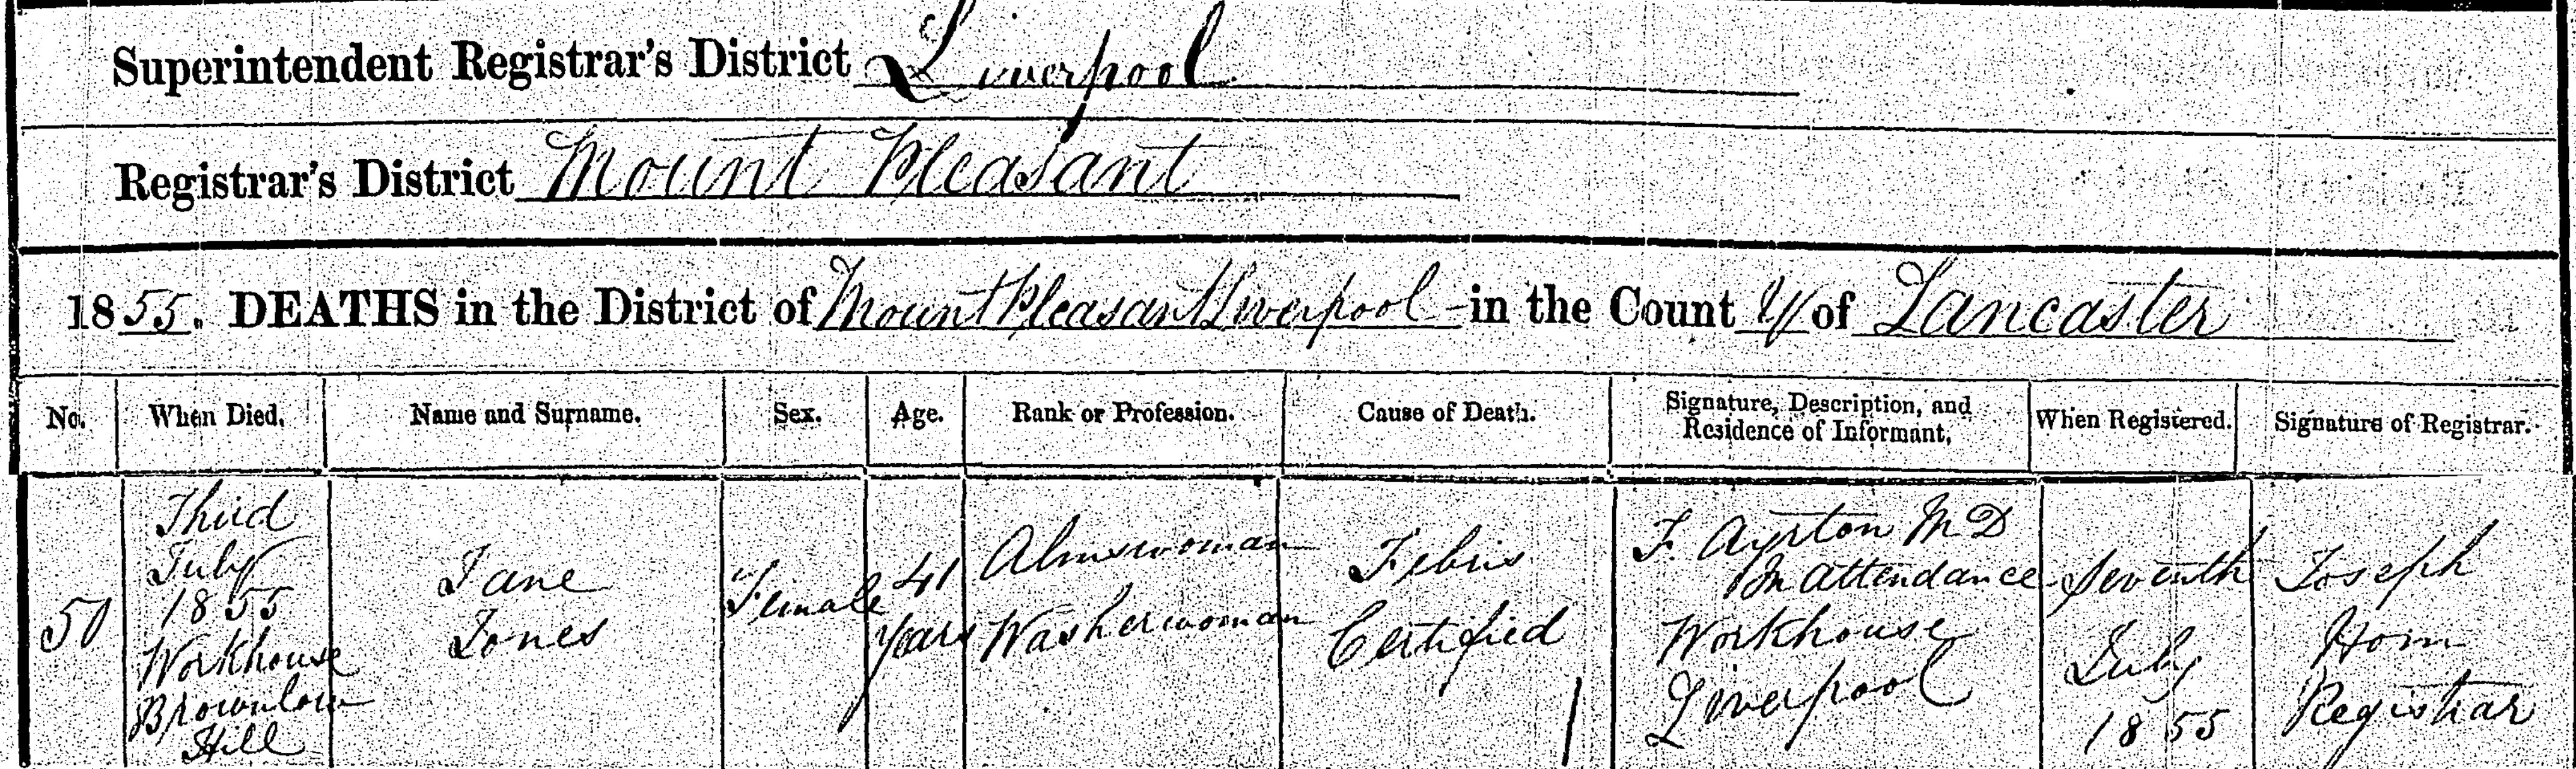 Superintendent Registrar's District Liverpool
Registrar's District Mount Pleasant
1855. DEATHS in the District of Mount Pleasant Liverpool in the County of Lancaster
No. When Died. Name and Surname. Sex. Age. Rank or Profession. Cause of Death. Signature, Description, and Residence of Informant. When Registered. Signature of Registrar.
50
Third
July
1855
Workhouse
Brownlow
Hill
Jane
Jones
Female
41
Years
Almswoman
Washerwoman
Febris
Certified
F. Ayrton M D
In attendance
Workhouse
Liverpool
Seventh
July
1855
Joseph
Horn
Registrar